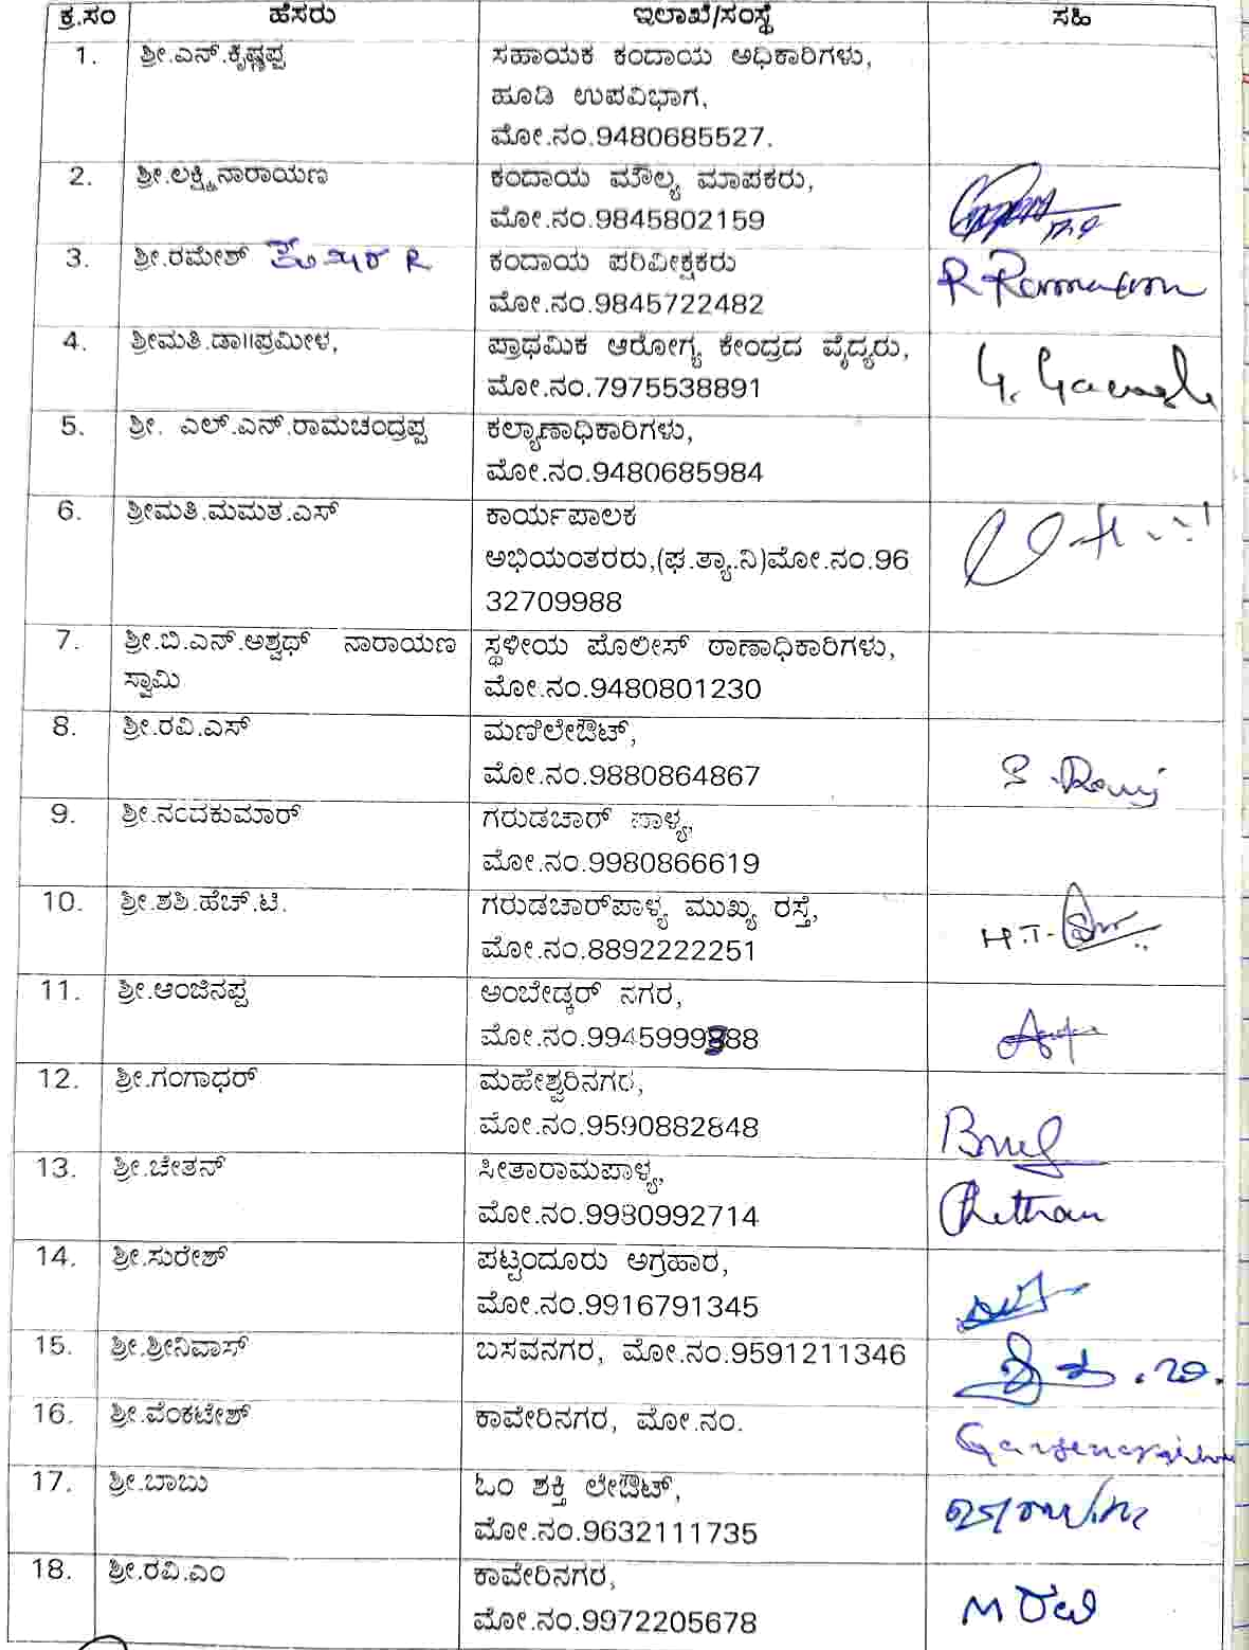 ಕ್ರ.ಸಂ ಹೆಸರು ಇಲಾಖೆ/ಸಂಸ್ಥೆ ಸಹಿ
1. ಶ್ರೀ.ಎನ್.ಕೃಷ್ಣಪ್ಪ ಸಹಾಯಕ ಕಂದಾಯ ಅಧಿಕಾರಿಗಳು,
ಹೂಡಿ ಉಪವಿಭಾಗ,
ಮೋ.ನಂ.9480685527.
2. ಶ್ರೀ.ಲಕ್ಷ್ಮಿನಾರಾಯಣ ಕಂದಾಯ ಮೌಲ್ಯ ಮಾಪಕರು,
ಮೋ.ನಂ.9845802159
3. ಶ್ರೀ.ರಮೇಶ್ R ಕಂದಾಯ ಪರಿವೀಕ್ಷಕರು
ಮೋ.ನಂ.9845722482 R
4. ಶ್ರೀಮತಿ.ಡಾ॥ಪ್ರಮೀಳ, ಪ್ರಾಥಮಿಕ ಆರೋಗ್ಯ ಕೇಂದ್ರದ ವೈದ್ಯರು,
ಮೋ.ನಂ.7975538891 G.
5. ಶ್ರೀ. ಎಲ್.ಎನ್.ರಾಮಚಂದ್ರಪ್ಪ ಕಲ್ಯಾಣಾಧಿಕಾರಿಗಳು,
ಮೋ.ನಂ.9480685984
6. ಶ್ರೀಮತಿ.ಮಮತ.ಎಸ್ ಕಾರ್ಯಪಾಲಕ
ಅಭಿಯಂತರರು,(ಘ.ತ್ಯಾ.ನಿ)ಮೋ.ನಂ.96
32709988
7. ಶ್ರೀ.ಬಿ.ಎನ್.ಅಶ್ವಥ್ ನಾರಾಯಣ ಸ್ಥಳೀಯ ಪೊಲೀಸ್ ಠಾಣಾಧಿಕಾರಿಗಳು,
ಸ್ವಾಮಿ ಮೋ.ನಂ.9480801230
8. ಶ್ರೀ.ರವಿ.ಎಸ್ ಮಣಿಲೇಔಟ್,
ಮೋ.ನಂ.9880864867 S.
9. ಶ್ರೀ.ನಂದಕುಮಾರ್ ಗರುಡಚಾರ್ ಪಾಳ್ಯ,
ಮೋ.ನಂ.9980866619
10. ಶ್ರೀ.ಶಶಿ.ಹೆಚ್.ಟಿ. ಗರುಡಚಾರ್‌ಪಾಳ್ಯ ಮುಖ್ಯ ರಸ್ತೆ,
ಮೋ.ನಂ.8892222251 H.T.
11. ಶ್ರೀ.ಆಂಜಿನಪ್ಪ ಅಂಬೇಡ್ಕರ್ ನಗರ,
ಮೋ.ನಂ.9945999888
12. ಶ್ರೀ.ಗಂಗಾಧರ್ ಮಹೇಶ್ವರಿನಗರ,
ಮೋ.ನಂ.9590882848
13. ಶ್ರೀ.ಚೇತನ್ ಸೀತಾರಾಮಪಾಳ್ಯ,
ಮೋ.ನಂ.9980992714 Chethan
14. ಶ್ರೀ.ಸುರೇಶ್ ಪಟ್ಟಂದೂರು ಅಗ್ರಹಾರ,
ಮೋ.ನಂ.9916791345
15. ಶ್ರೀ.ಶ್ರೀನಿವಾಸ್ ಬಸವನಗರ, ಮೋ.ನಂ.9591211346
16. ಶ್ರೀ.ವೆಂಕಟೇಶ್ ಕಾವೇರಿನಗರ, ಮೋ.ನಂ.
17. ಶ್ರೀ.ಬಾಬು ಓಂ ಶಕ್ತಿ ಲೇಔಟ್,
ಮೋ.ನಂ.9632111735
18. ಶ್ರೀ.ರವಿ.ಎಂ ಕಾವೇರಿನಗರ,
ಮೋ.ನಂ.9972205678 M ರವಿ